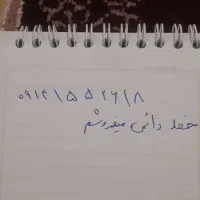 ۰۹۱۴۱۵۵۲۶۱۸
خط دائمی میفروشم